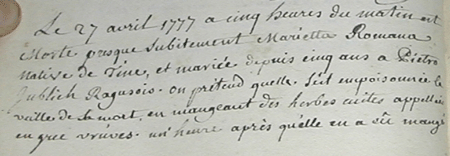 Le 27 avril 1777 a cinq heures du matin est
Morte presque Subitement Marietta Romana
Native de Tine, et mariée depuis cinq ans a Pietro
Jublich Ragusois. on prétend quelle. S'est empoisonnée la
veille de sa mort, en mangeant des herbes cuites appellées
en grec vruves. un'heure après qu'elle en a eût mangé